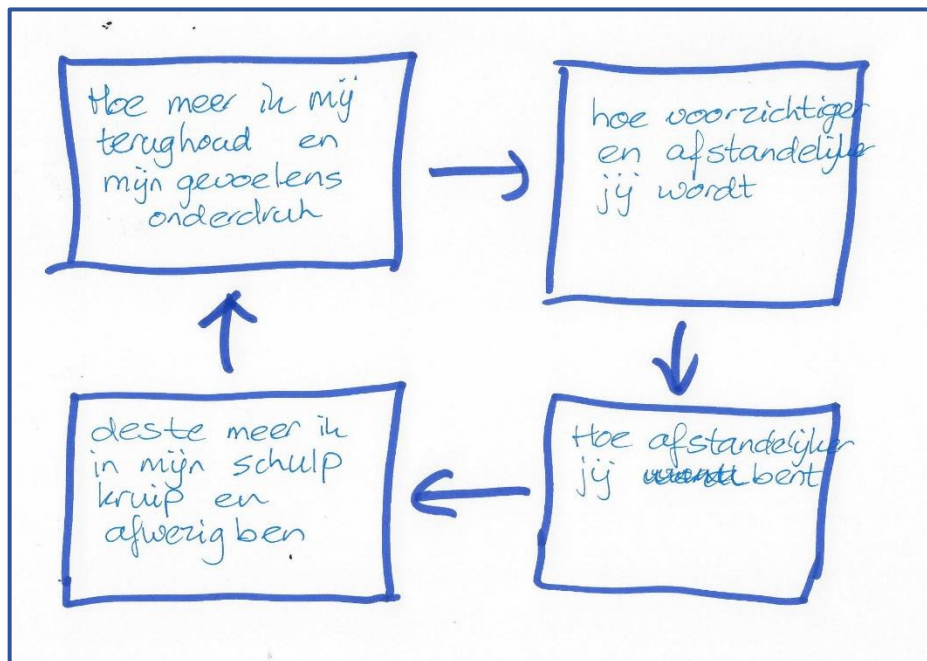 Hoe meer ik mij
terughoud en
mijn gevoelens
onderdruk
hoe voorzichtiger
en afstandelijker
jij wordt
Hoe afstandelijker
jij bent
deste meer ik
in mijn schulp
kruip en
afwezig ben